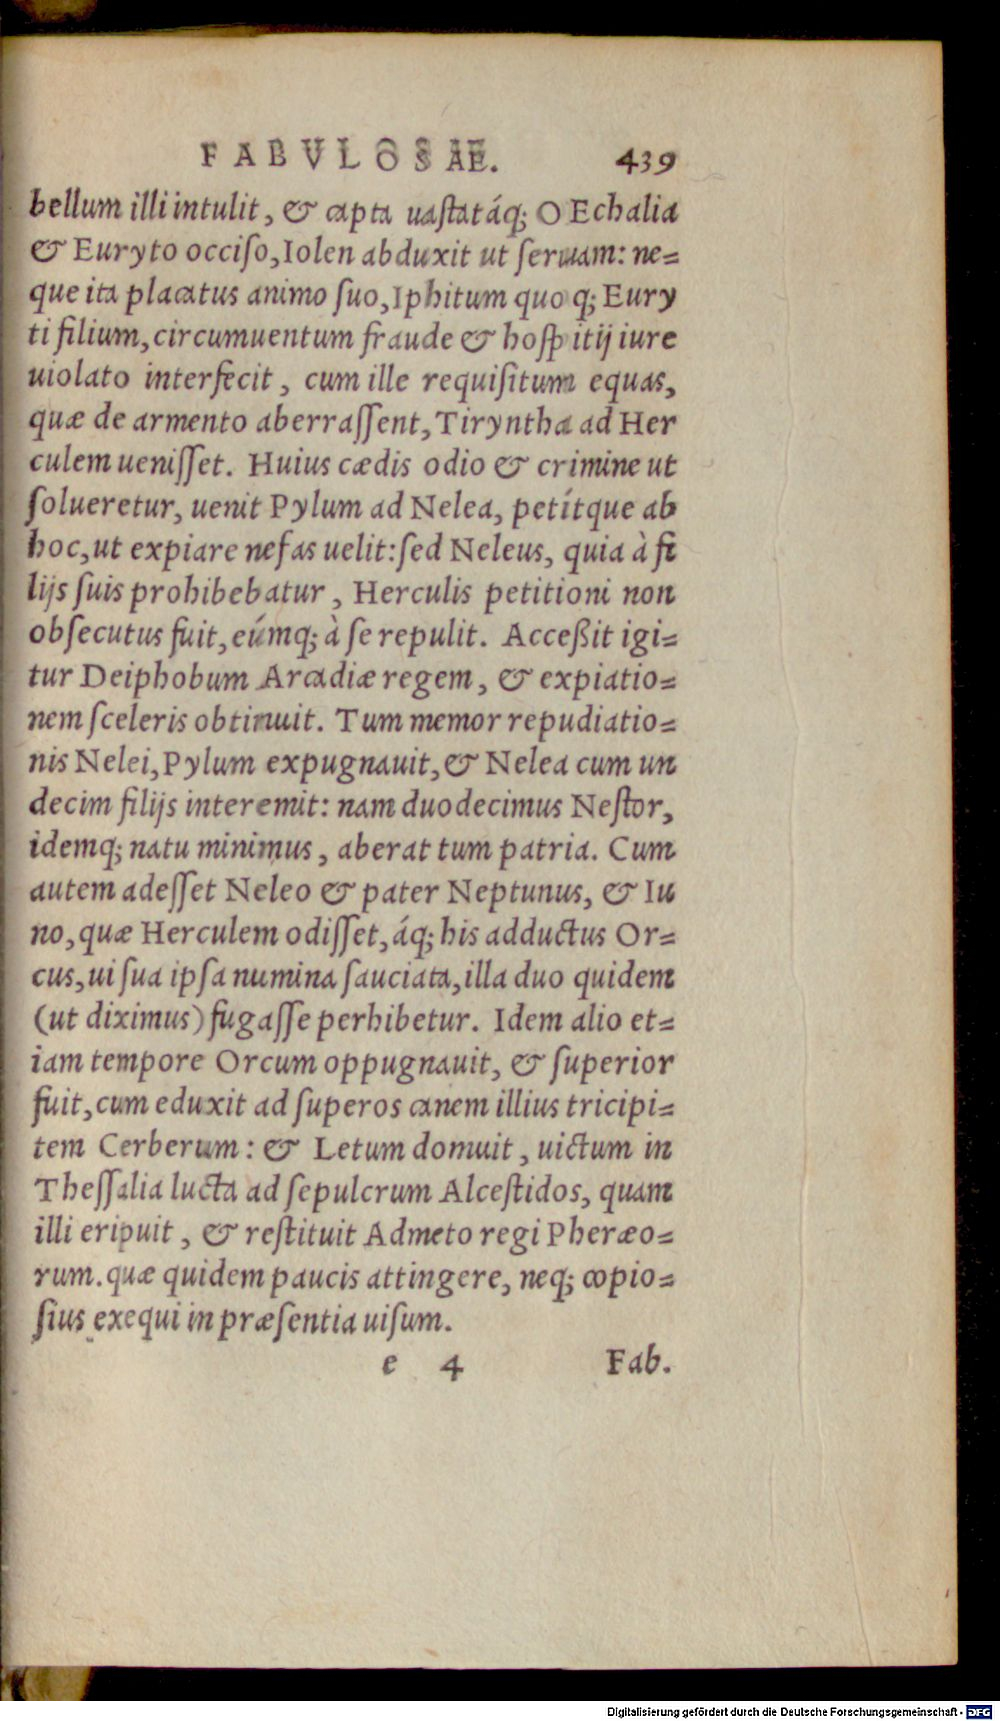 FABVLOSAE. 439
bellum illi intulit, & capta uaſtatáq; OEchalia
& Euryto occiſo, Iolen abduxit ut ſeruam: ne=
que ita placatus animo ſuo, Iphitum quoq; Eury
ti filium, circumuentum fraude & hoſpitij iure
uiolato interfecit, cum ille requiſitum equas,
quæ de armento aberraſſent, Tiryntha ad Her
culem ueniſſet. Huius cædis odio & crimine ut
ſolueretur, uenit Pylum ad Nelea, petítque ab
hoc, ut expiare nefas uelit: ſed Neleus, quia à fi
lijs ſuis prohibebatur, Herculis petitioni non
obſecutus fuit, eúmq; à ſe repulit. Acceßit igi=
tur Deiphobum Arcadiæ regem, & expiatio=
nem ſceleris obtinuit. Tum memor repudiatio=
nis Nelei, Pylum expugnauit, & Nelea cum un
decim filijs interemit: nam duodecimus Neſtor,
idemq; natu minimus, aberat tum patria. Cum
autem adeſſet Neleo & pater Neptunus, & Iu
no, quæ Herculem odiſſet, áq; his adductus Or=
cus, ui ſua ipſa numina ſauciata, illa duo quidem
(ut diximus) fugaſſe perhibetur. Idem alio et=
iam tempore Orcum oppugnauit, & ſuperior
fuit, cum eduxit ad ſuperos canem illius tricipi=
tem Cerberum: & Letum domuit, uictum in
Theſſalia lucta ad ſepulcrum Alceſtidos, quam
illi eripuit, & reſtituit Admeto regi Pheræo=
rum. quæ quidem paucis attingere, neq; copio=
ſius exequi in præſentia uiſum.
e 4 Fab.
Digitalisierung gefördert durch die Deutsche Forschungsgemeinschaft - DFG